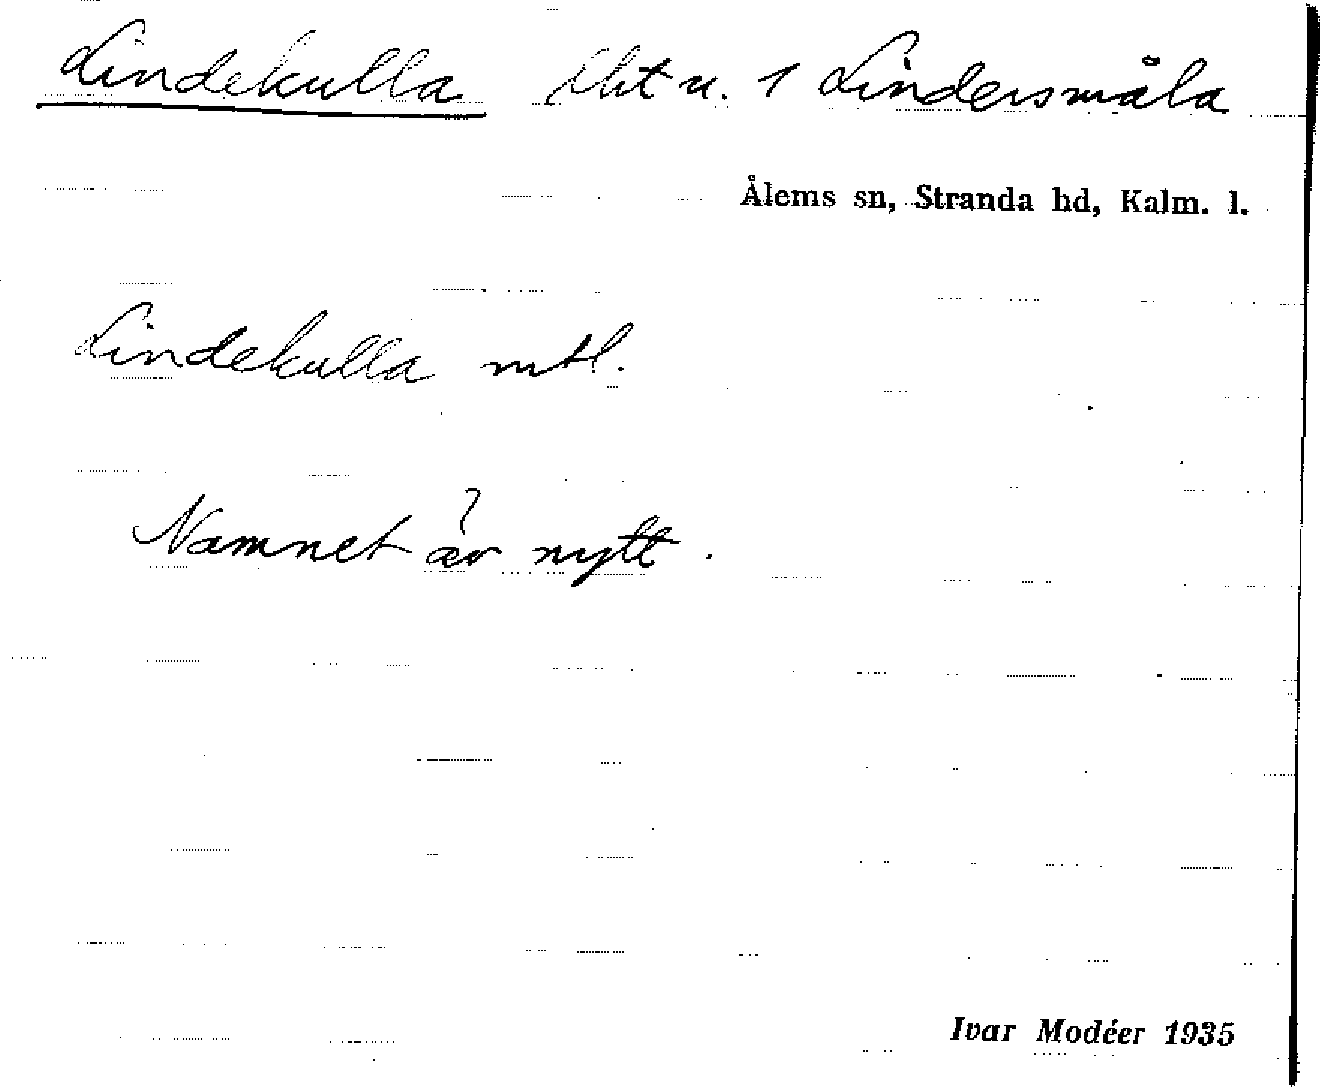 Lindekulla lht u. 1 Lindersmåla
Ålems sn, Stranda hd, Kalm. l.
Lindekulla mtl.
Namnet är nytt.
Ivar Modéer 1935